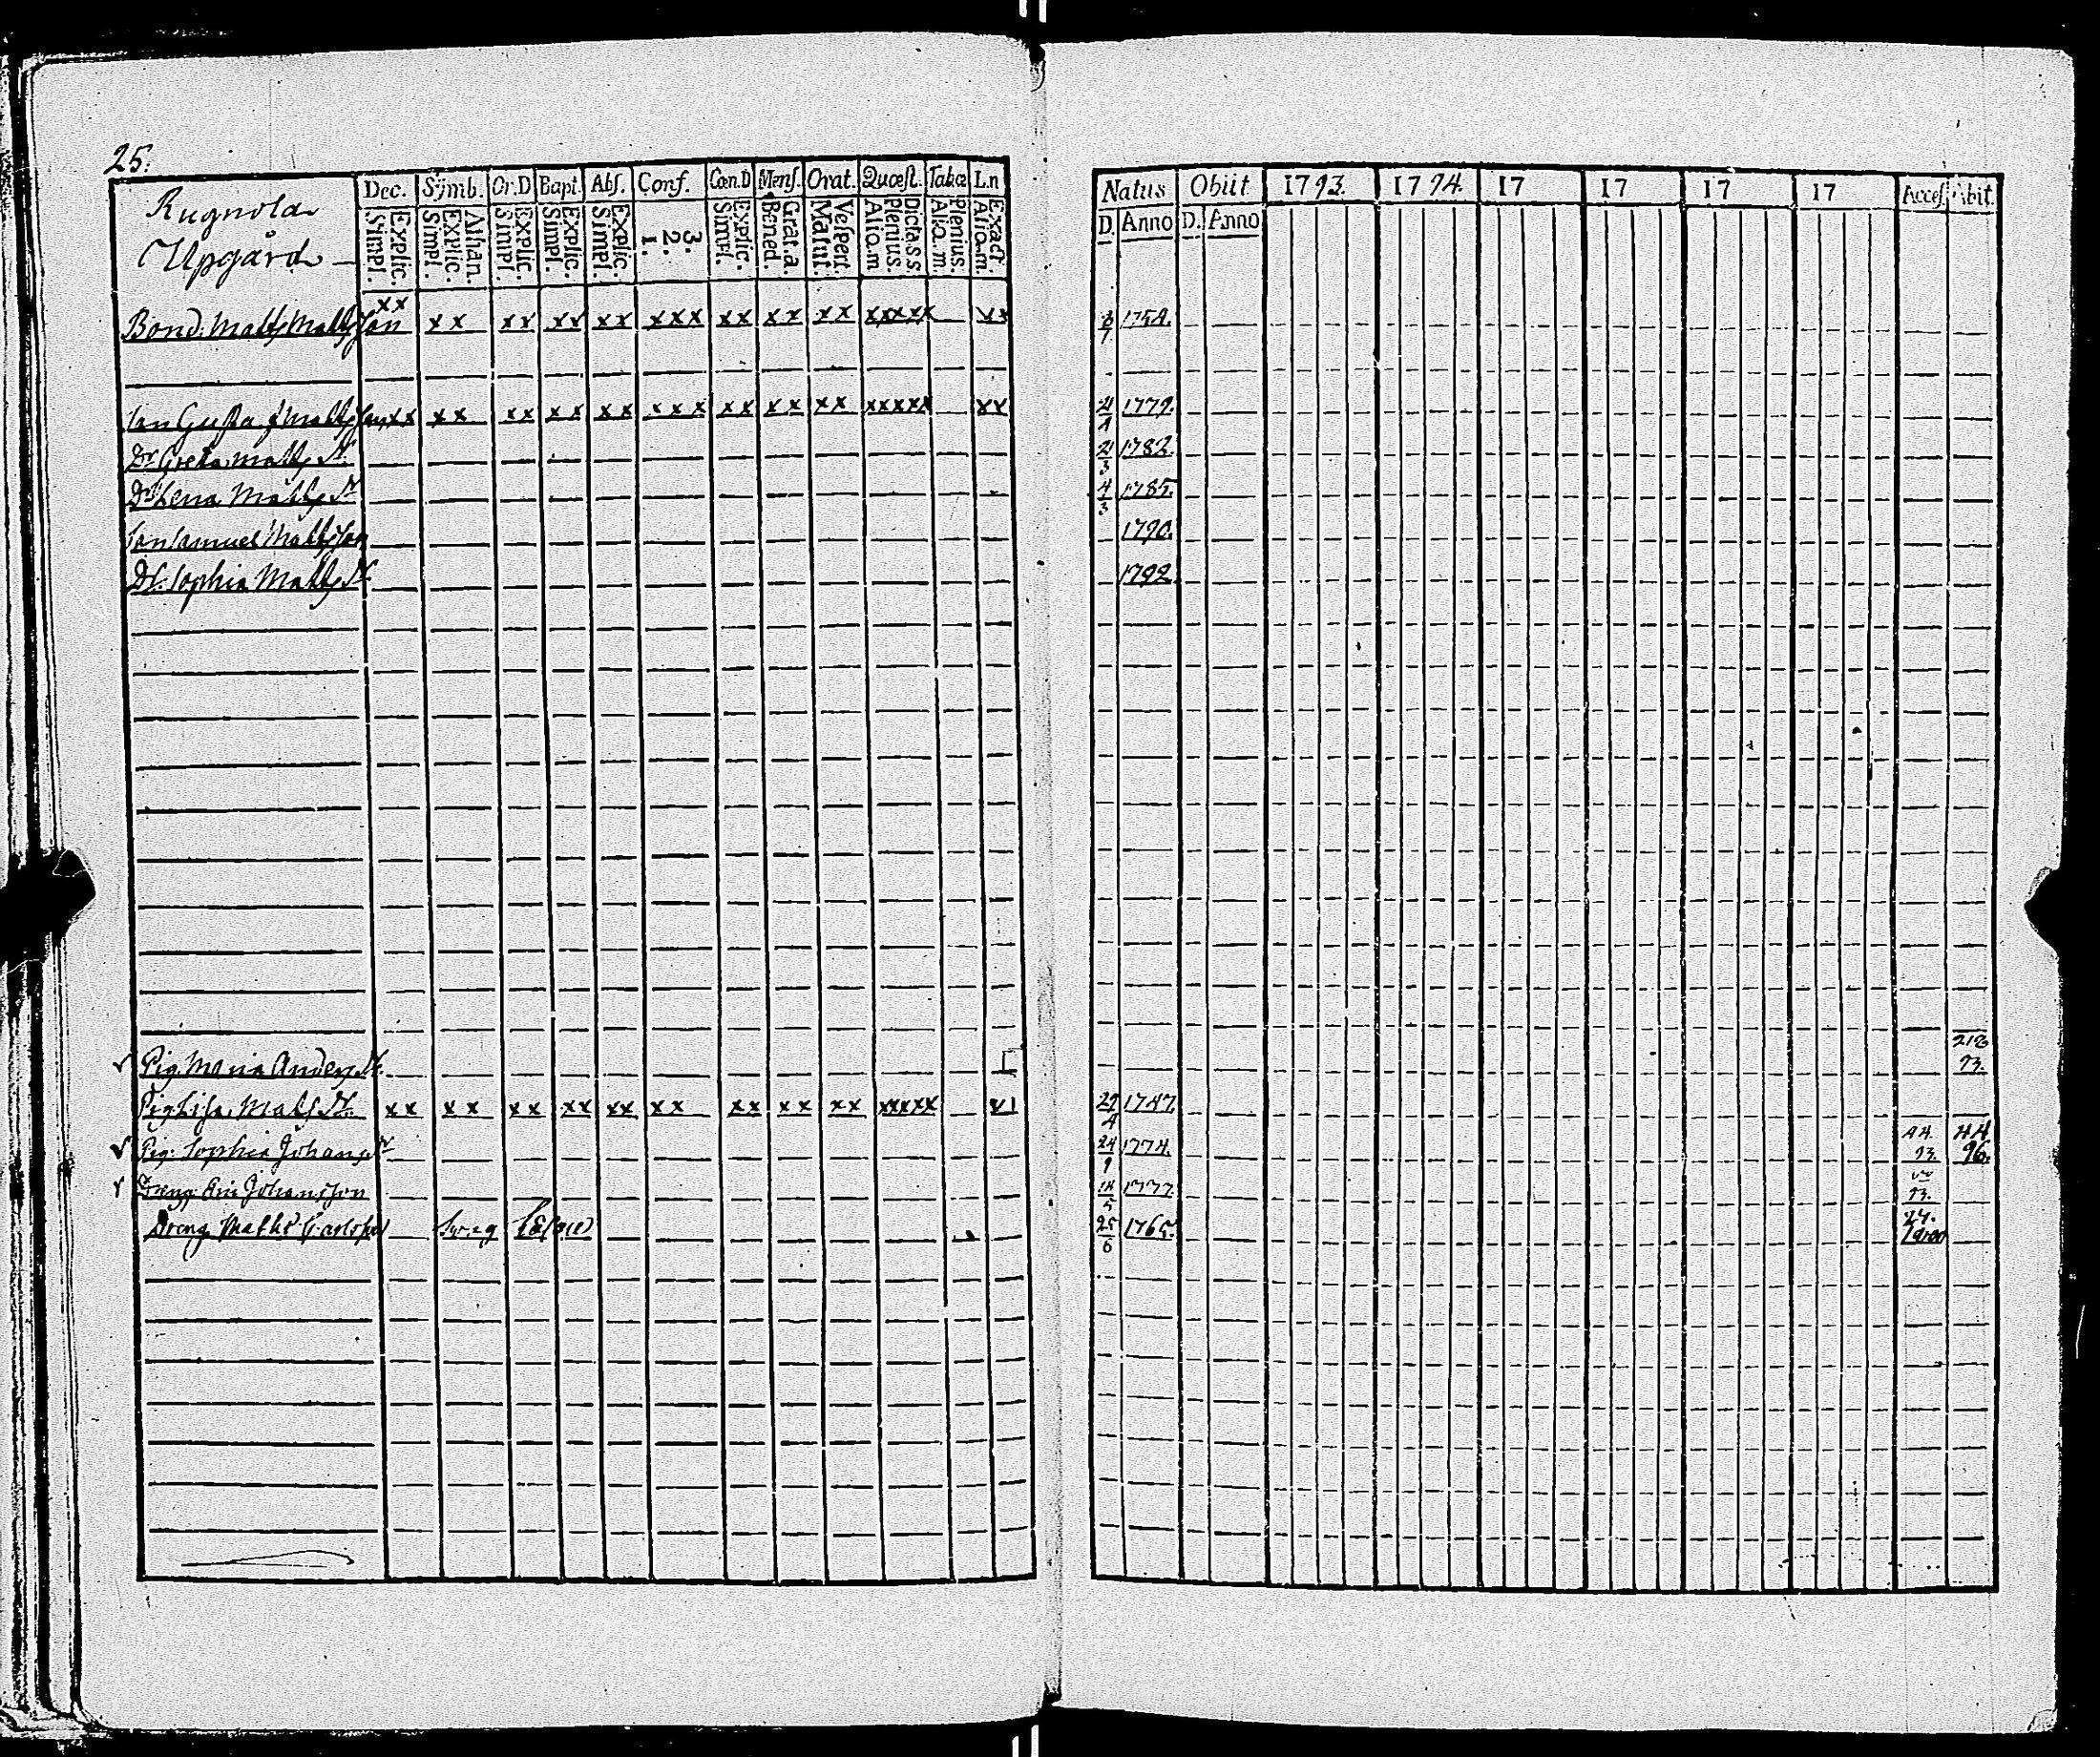 25.
Rugnola
Upgård
Dec. Symb. Or.D Bapt. Abs. Conf. Cœn.D Mens. Orat. Quæst. Tabœ L.n
Simpl. Explic. Simpl. Explic. Athan. Simpl. Explic. Simpl. Explic. Simpl. Explic. 1. 2. 3. Simpl. Explic. Bened. Grat.a. Matut. Vespert. Alio.m Plenius. Dicta.s.s Alio.m. Plenius. Alio.m. Exact.
Natus Obiit 1793. 1794. 17 17 17 17 Acces. Abit.
D. Anno D. Anno
xx
Bond. Matts Mattsson xx xx xx xx xxx xx xx xx xxxxx xx 1754.
Son Gustaf Mattsson xx xx xx xx xx xxx xx xx xx xxxxx xx 21/4 1779.
Dr Greta Matts Dr. 21/3 1782.
Dr Lena Matts Dr 4/3 1785.
Son Samuel Mattsson 1790.
Dr. Sophia Matts Dr 1792.
Pig. Maria Anders Dr. 93.
Pig Lisa Mats Dr. xx xx xx xx xx xx xx xx xx xxxxx 29/4 1747.
Pig. Sophia Johans Dr 24/9 1774. 44. 93. 44 96.
Dreng Johansson 18/5 1777. 93.
Dreng Matts Carlsson 25/6 1765. 24.